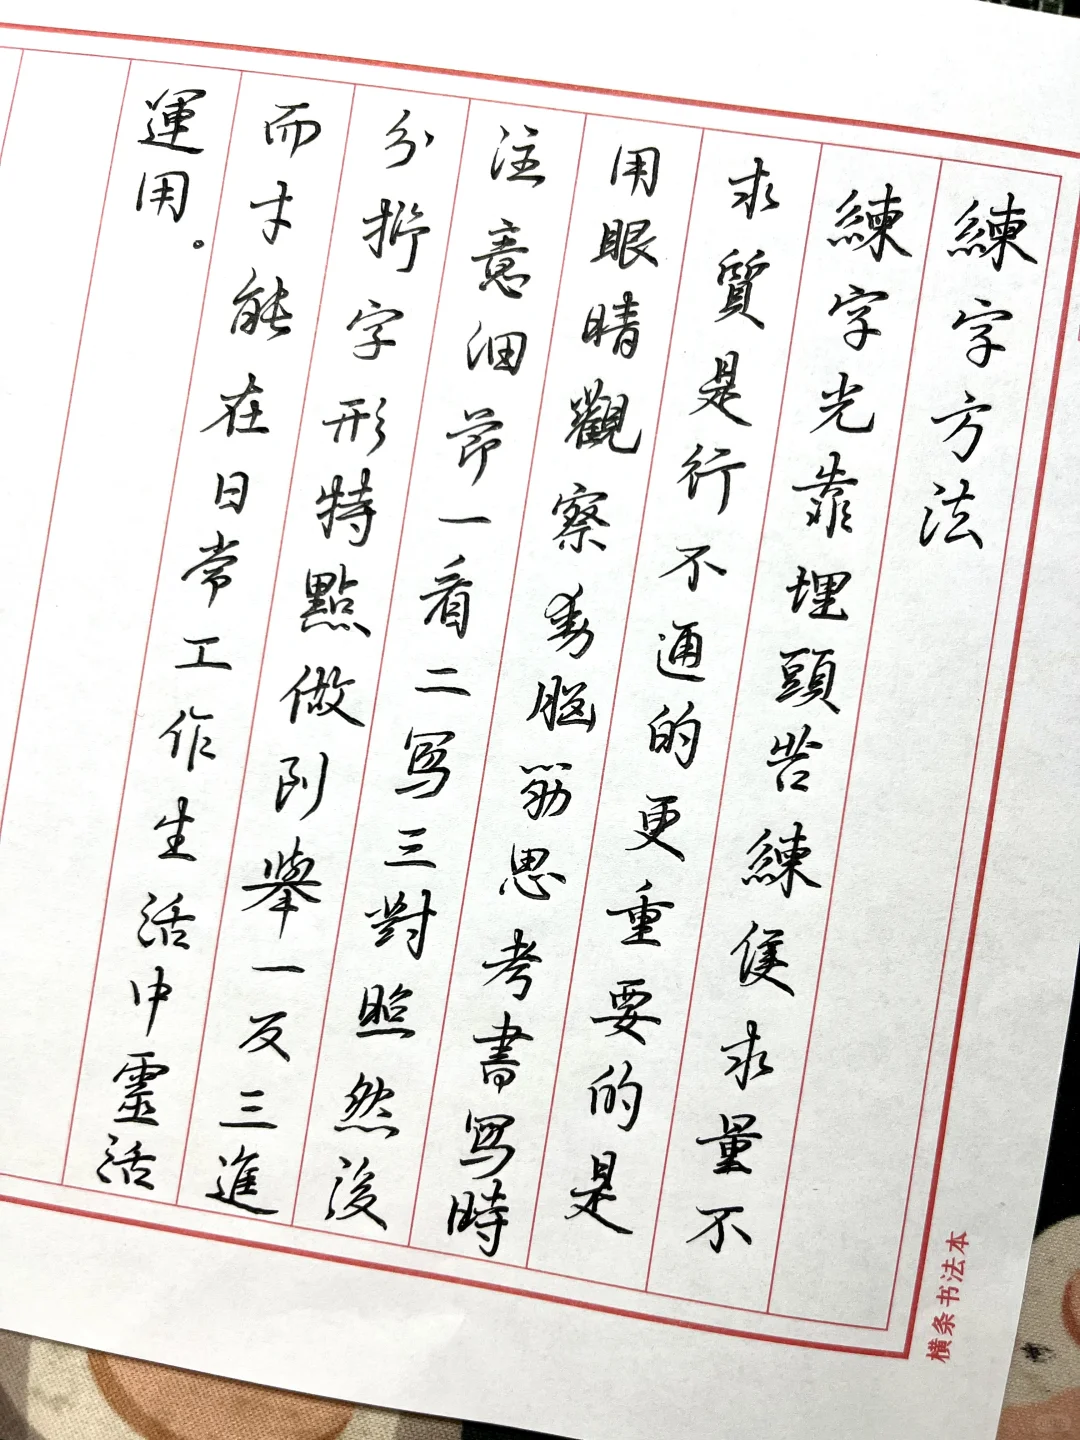 練字方法
練字光靠埋頭苦練僅求量不
求質是行不通的更重要的是
用眼睛觀察動脳筋思考書寫時
注意细節一看二寫三對照然後
分析字形特點做到舉一反三進
而才能在日常工作生活中靈活
運用。
横条书法本